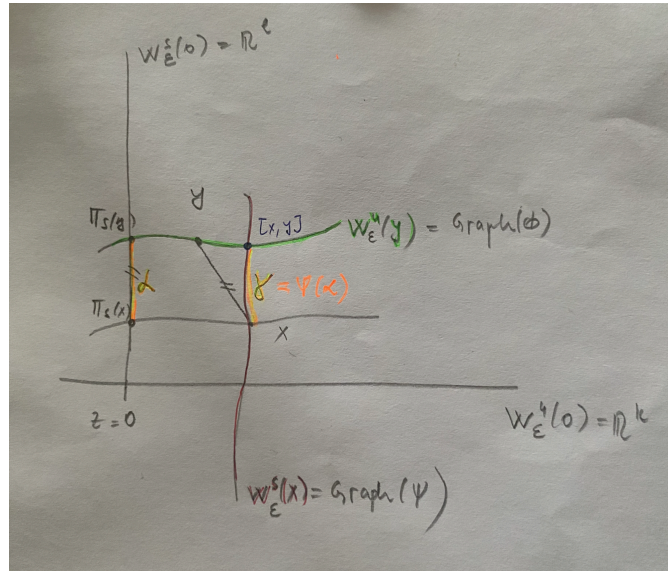 W^s_ε(0) = ℝ^ℓ
y
Π_s(y)
[x,y]
W^u_ε(y) = Graph(ϕ)
α
γ = Ψ(α)
Π_s(x)
x
z = 0
W^u_ε(0) = ℝ^k
W^s_ε(x) = Graph(Ψ)